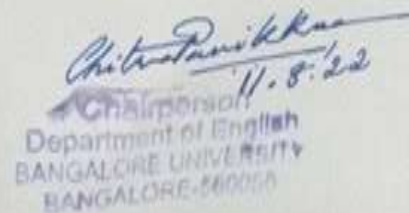 Chitra Panikkar
11.8.'22
Chairperson
Department of English
BANGALORE UNIVERSITY
BANGALORE-560056